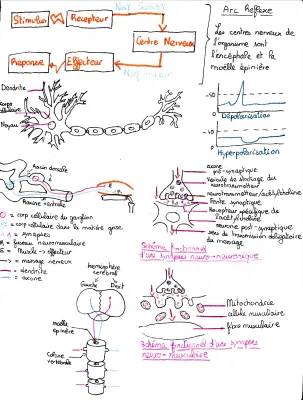 Nerf Sensitif
Stimulus
Recepteur
Centre Nerveux
Reponse
Effecteur
Nerf moteur
Arc Reflexe
Les centres nerveux de
l'organisme sont
l'encéphale et la
moelle épinière
Dendrite
Corps
cellulaire
Noyau
Dépolarisation
Hyperpolarisation
Racine dorsale
Racine ventrale
corps cellulaire du ganglion
corps cellulaire dans la matière grise
synapses
fuseau neuromusculaire
Muscle → effecteur
→ message nerveux
= dendrite
= axone
axone
pré-synaptique
Vésicule de stockage du
neurotransmetteur
neurotransmetteur/acétylcholine
Fente synaptique
Recepteur spécifique de
l'acétylcholine
neurone post-synaptique
sens de transmission obligatoire
du message
Schéma fonctionnel
d'une synapse neuro-neuronique
hémisphère
cérébral
Gauche
Droit
moelle
épinière
Colonne
vertébrale
Mitochondrie
cellule musculaire
fibre musculaire
Schéma fonctionnel d'une synapse
neuro-musculaire